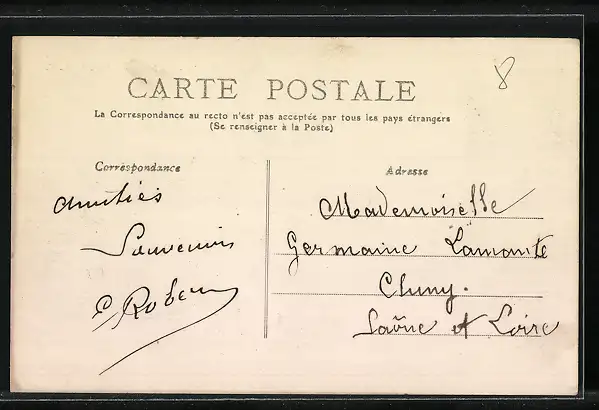 8
CARTE POSTALE
La Correspondance au recto n'est pas acceptée par tous les pays étrangers
(Se renseigner à la Poste)
Correspondance
Adresse
Amitiés
Souvenirs
Mademoiselle
Germaine Lamonte
Cluny.
Saône et Loire